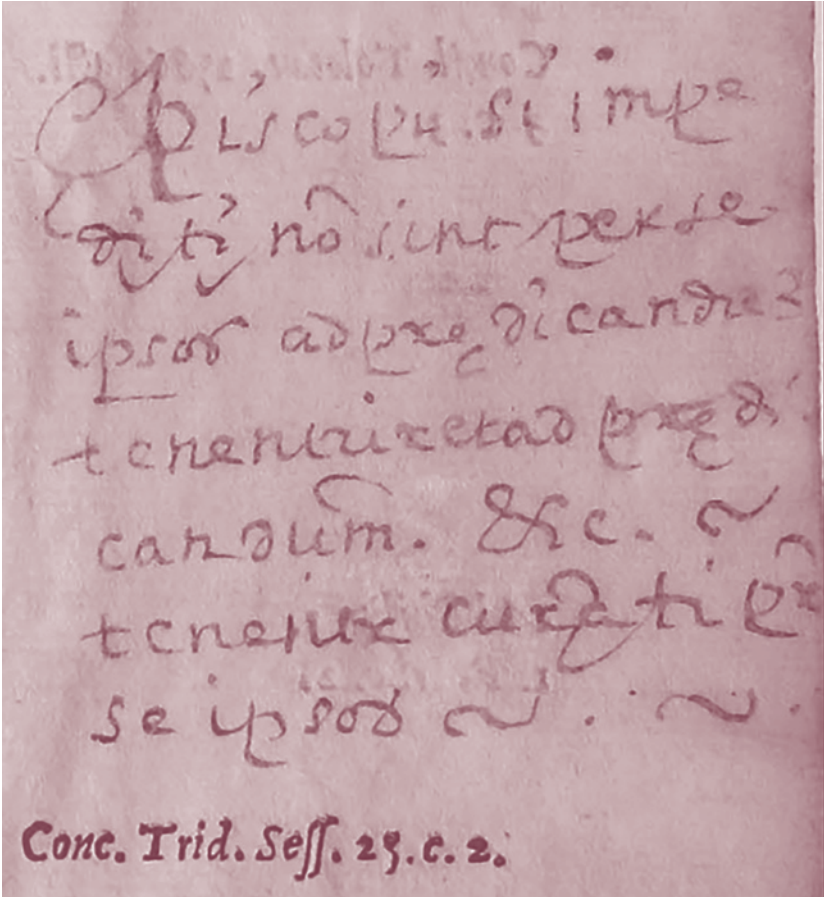 Episcopi. si impe
diti nõ sint per se
ipsos ad prędicandũ
tenentur et ad prędi
candum. &c. ~
tenentur curati
se ipsos ~ . ~ .
Conc. Trid. Seſſ. 25. c. 2.